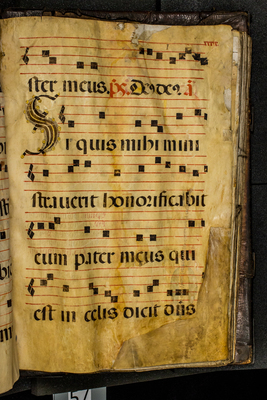 ster meus. ps. Deus deꝰ
Si quis mihi mini
straverit honorificabit
eum pater meus qui
est in celis dicit dñs
57